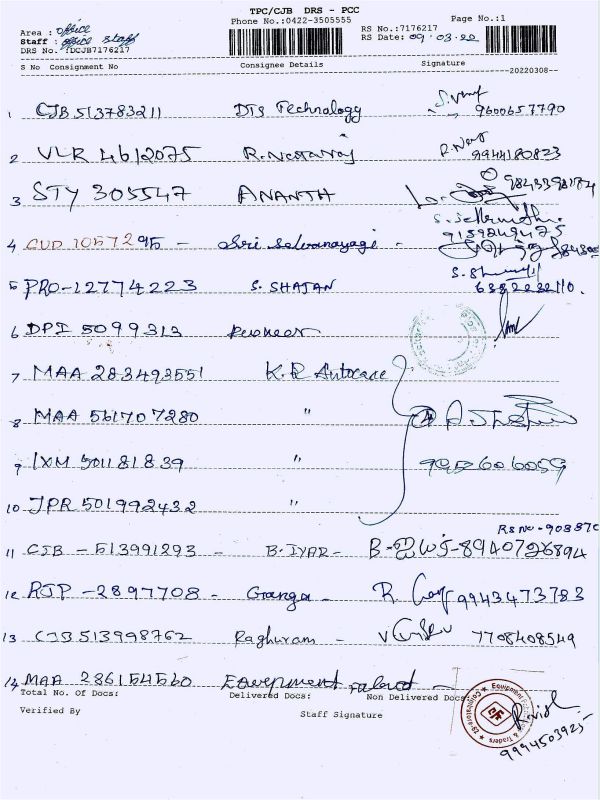 TPC/CJB DRS - PCC
Phone No.:0422-3505555
Page No.:1
Area : office
Staff : office staff
DRS No.:TDCJB7176217
RS No.:7176217
RS Date: 09-03-22
S No Consignment No Consignee Details Signature
20220308
1 CJB 513783211 DTS Technology 9600657790
2 VLR 4612075 R. Nataraj 9944180823
3 STY 305547 ANANTH
4 CUD 1057295 - Sri Selvanayagi -
5 PRO-12774223 S. SHAJAN 6382232110.
6 DPI 5099313 Pioneer
7 MAA 283493551 K.R Autocare
8 MAA 561707280 "
9 IXM 501181839 "
10 JPR 501992432 "
11 CJB - 513991293 - B. IYAR - 8940726894
12 RJP - 2897708 - Ganga - 9943473783
13 CJB 513998762 Raghuram - 7708408549
14 MAA 286154560
Total No. of Docs: Delivered Docs: Non Delivered Docs:
Verified By Staff Signature
9994503925